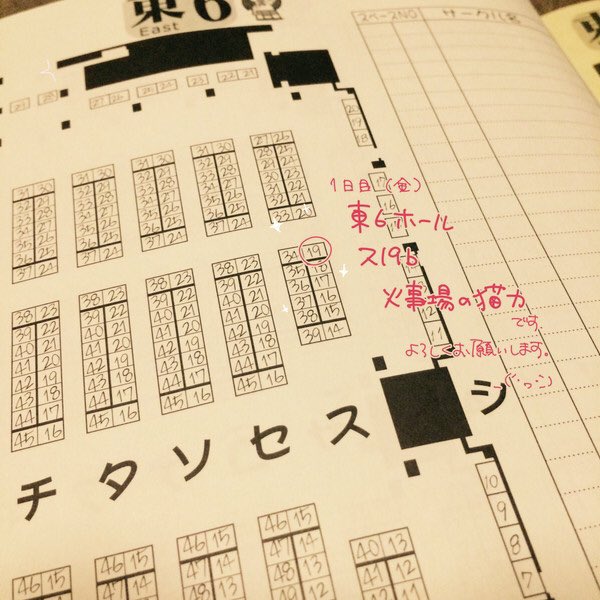 東6
East
スペースNO サークル名
27 26 25 24 23 22 21
20
19
18
31 30 31 30 31 30 31 30 27 26
37 24 37 24 37 24 37 24 33 20
17
16
1日目(金)
東6ホール
ス19b
火事場の猫力
です
よろしくお願いします。
38 23 38 23 38 23 38 23 34 19
39 22 39 22 39 22 39 22 35 18
40 21 40 21 40 21 40 21 36 17
41 20 41 20 41 20 41 20 37 16
42 19 42 19 42 19 42 19 38 15
43 18 43 18 43 18 43 18 39 14
44 17 44 17 44 17 44 17
45 16 45 16 45 16 45 16
チタソセスシ
10
9
8
7
46 15 46 15 46 15 46 15 40 13
47 14 47 14 47 14 47 14 41 12